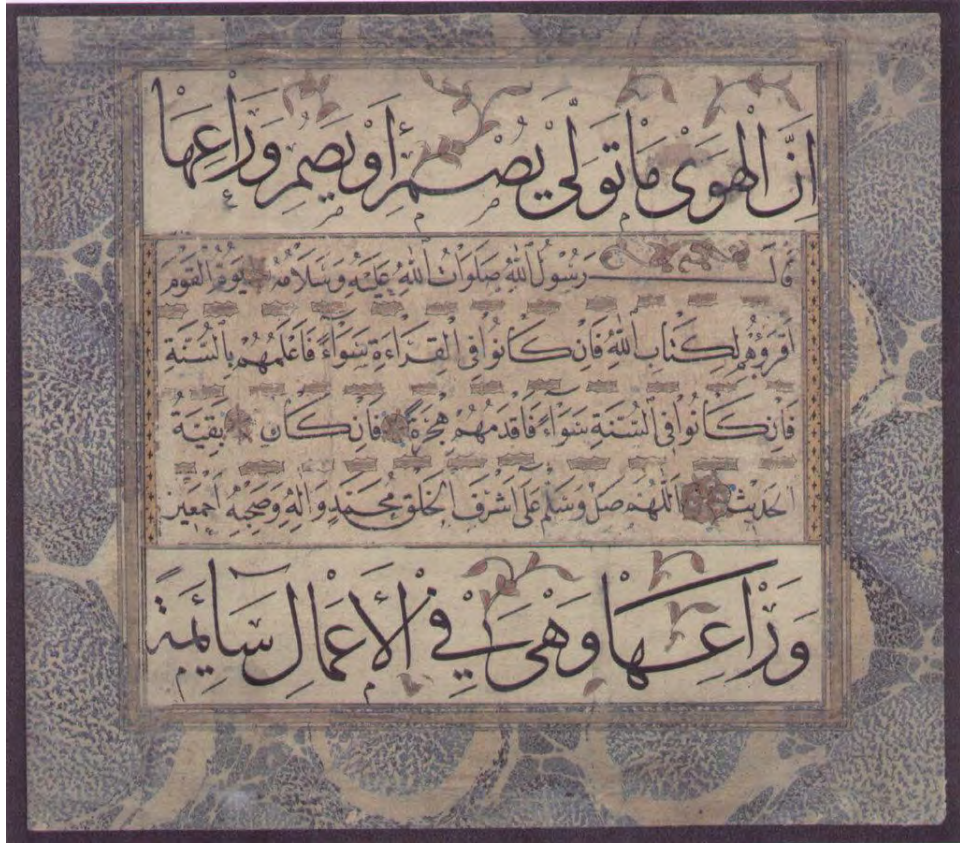 اِنَّ الْهَوَىْ مَاْ تَوَلّىْ يُصْمِ اَوْ يَصِمِ وَرَاْعِهَا
قال رَسُوْلُ اللهِ صَلَوَاتُ اللهِ عَلَيْهِ وَسَلَامُهُ يَؤُمُّ الْقَوْمَ
اَقْرَؤُهُمْ لِكِتَابِ اللهِ فَاِنْ كَانُوْا فِي الْقِرَاءَةِ سَوَاءً فَاَعْلَمُهُمْ بِالسُّنَّةِ
فَاِنْ كَانُوْا فِي السُّنَّةِ سَوَاءً فَاَقْدَمُهُمْ هِجْرَةً فَاِنْ كَانَ بَقِيَّةُ
الحَدِيْثِ اللّهُمَّ صَلِّ وَسَلِّمْ عَلَى اَشْرَفِ الخَلْقِ مُحَمَّدٍ وَاٰلِهِ وَصَحْبِهِ اَجْمَعِيْنَ
وَرَاْعِهَاْ وَهْيَ فِيْ الْاَعْمَالِ سَائِمَةٌ